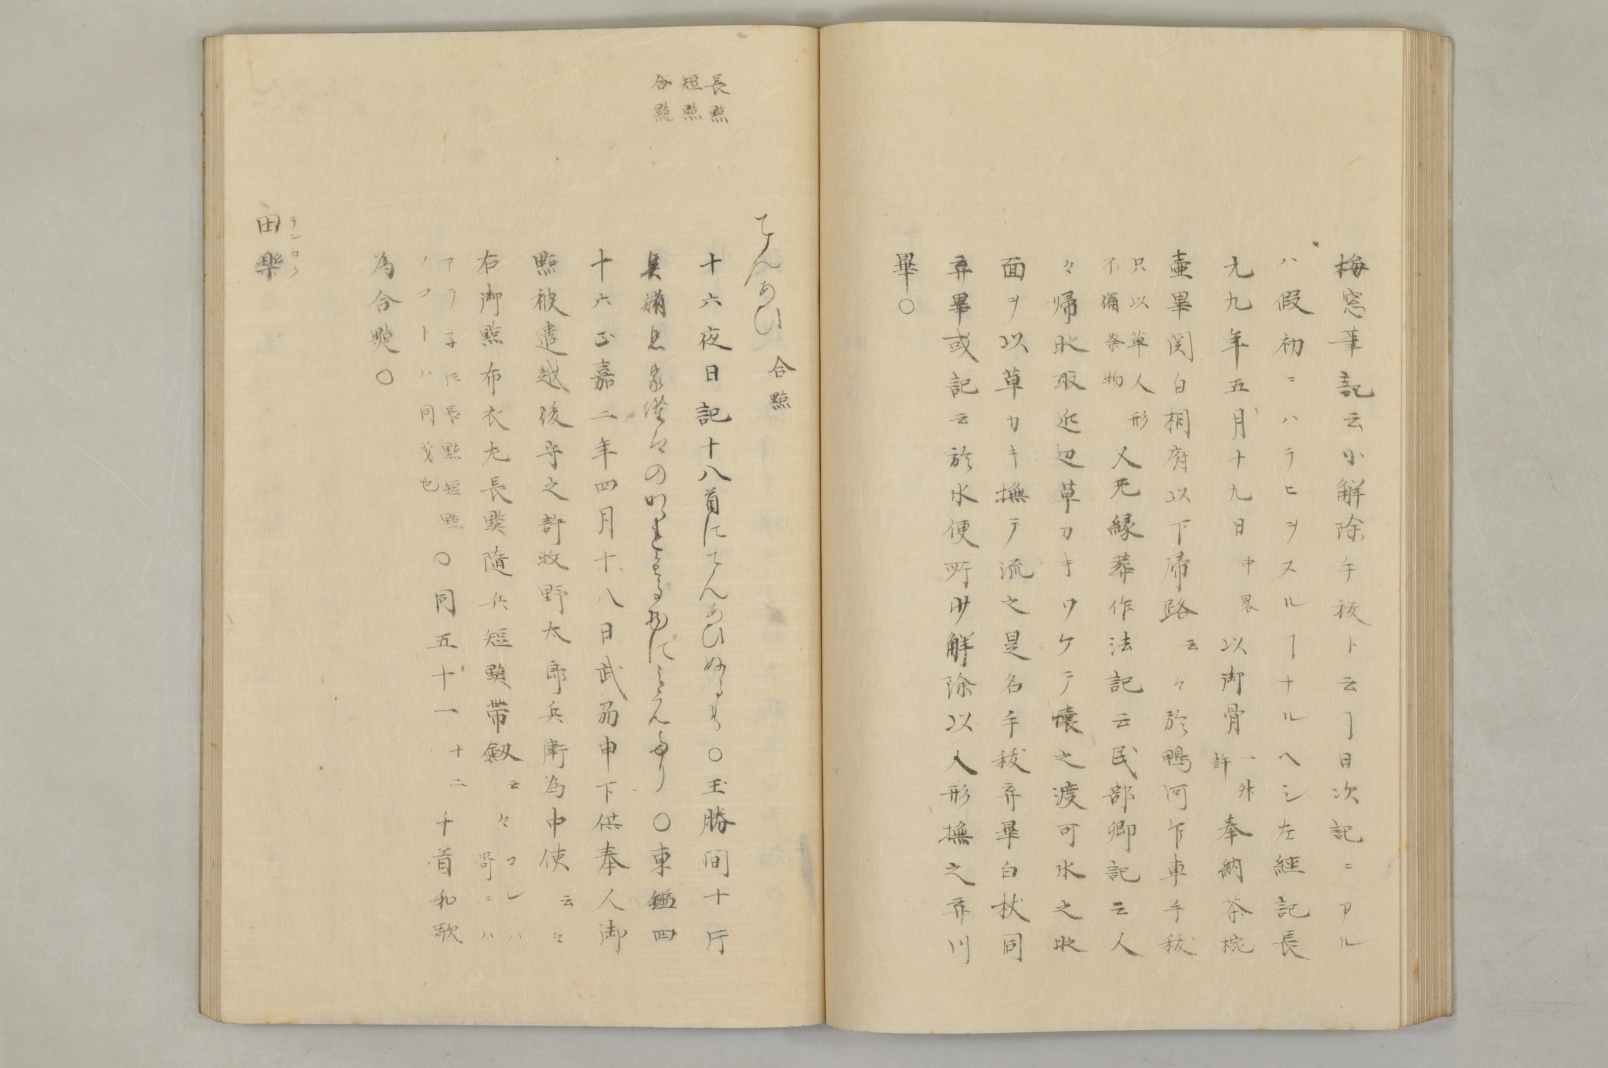 梅窓筆記云小解除手祓ト云ヿ日次記ニアル
ハ假初ニハラヒヲスルヿナルヘシ左經記長
元九年五月十九日中畧以御骨許一舛奉納茶椀
壷畢関白相府以下帰路云々於鴨河乍車手祓
只以草人形
不備祭物
又无縁葬作法記云民部卿記云人
々帰此取近辺草カキワケテ懐之渡可水之此
面ヲ以草カキ撫テ流之是名手祓弃畢白杖同
弃畢或記云於水便所小解除以人形撫之弃川
畢○
長點
短點
合點
てんあひ 合點
十六夜日記十八首にてんあひぬるも○玉勝間十斤
○東鑑四
十六正嘉二年四月十八日武州申下供奉人御
點被遣越後守之許牧野太郎兵衛為中使云々
右御點布衣尤長點隨兵短點帶釼云々コレハ哥ニハ
アラ子に長點短點
ノコトハ同義也
○同五十一十二千首和歌
為合點○
田樂
テンカク